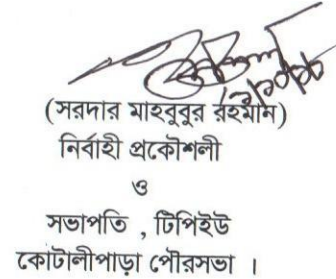 (সরদার মাহবুবুর রহমান)
নির্বাহী প্রকৌশলী
ও
সভাপতি , টিপিইউ
কোটালীপাড়া পৌরসভা ।